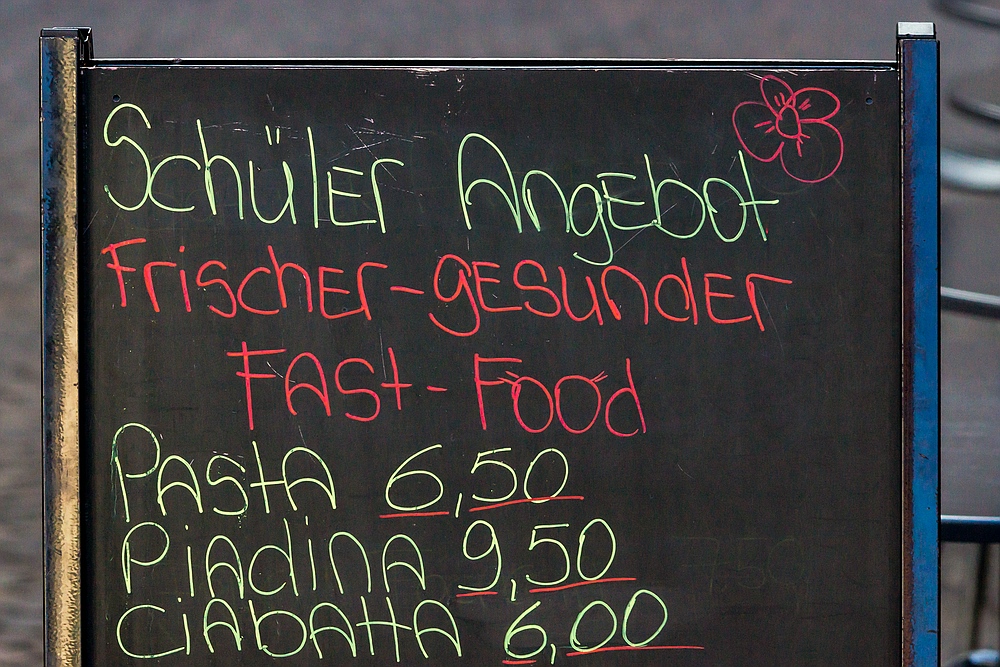 Schüler Angebot
Frischer-gesunder
Fast-Food
Pasta 6,50
Piadina 9,50
Ciabatta 6,00